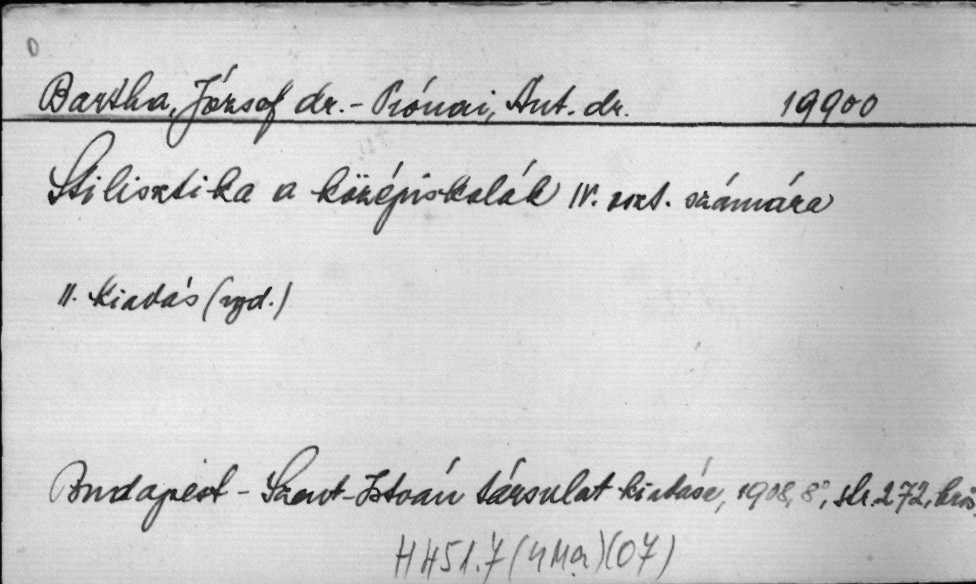 Bartha, József dr. - Prónai, Ant. dr. 19900
Stilisztika a középiskolák IV. oszt. számára
II. kiadás (vyd.)
Budapest - Szent-István társulat kiadása, 1908, 8°, str. 272,
H 451.7 (4Ma)(07)